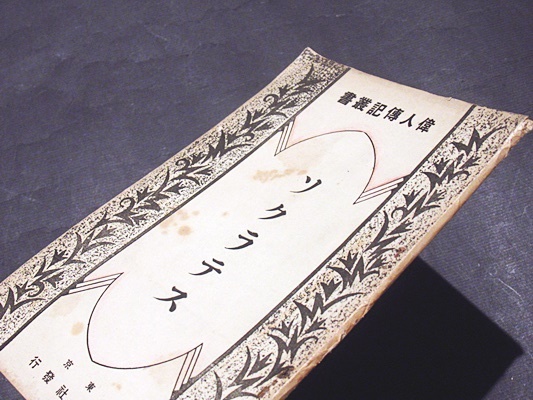 偉人傳記叢書
ソクラテス
東京
社發行